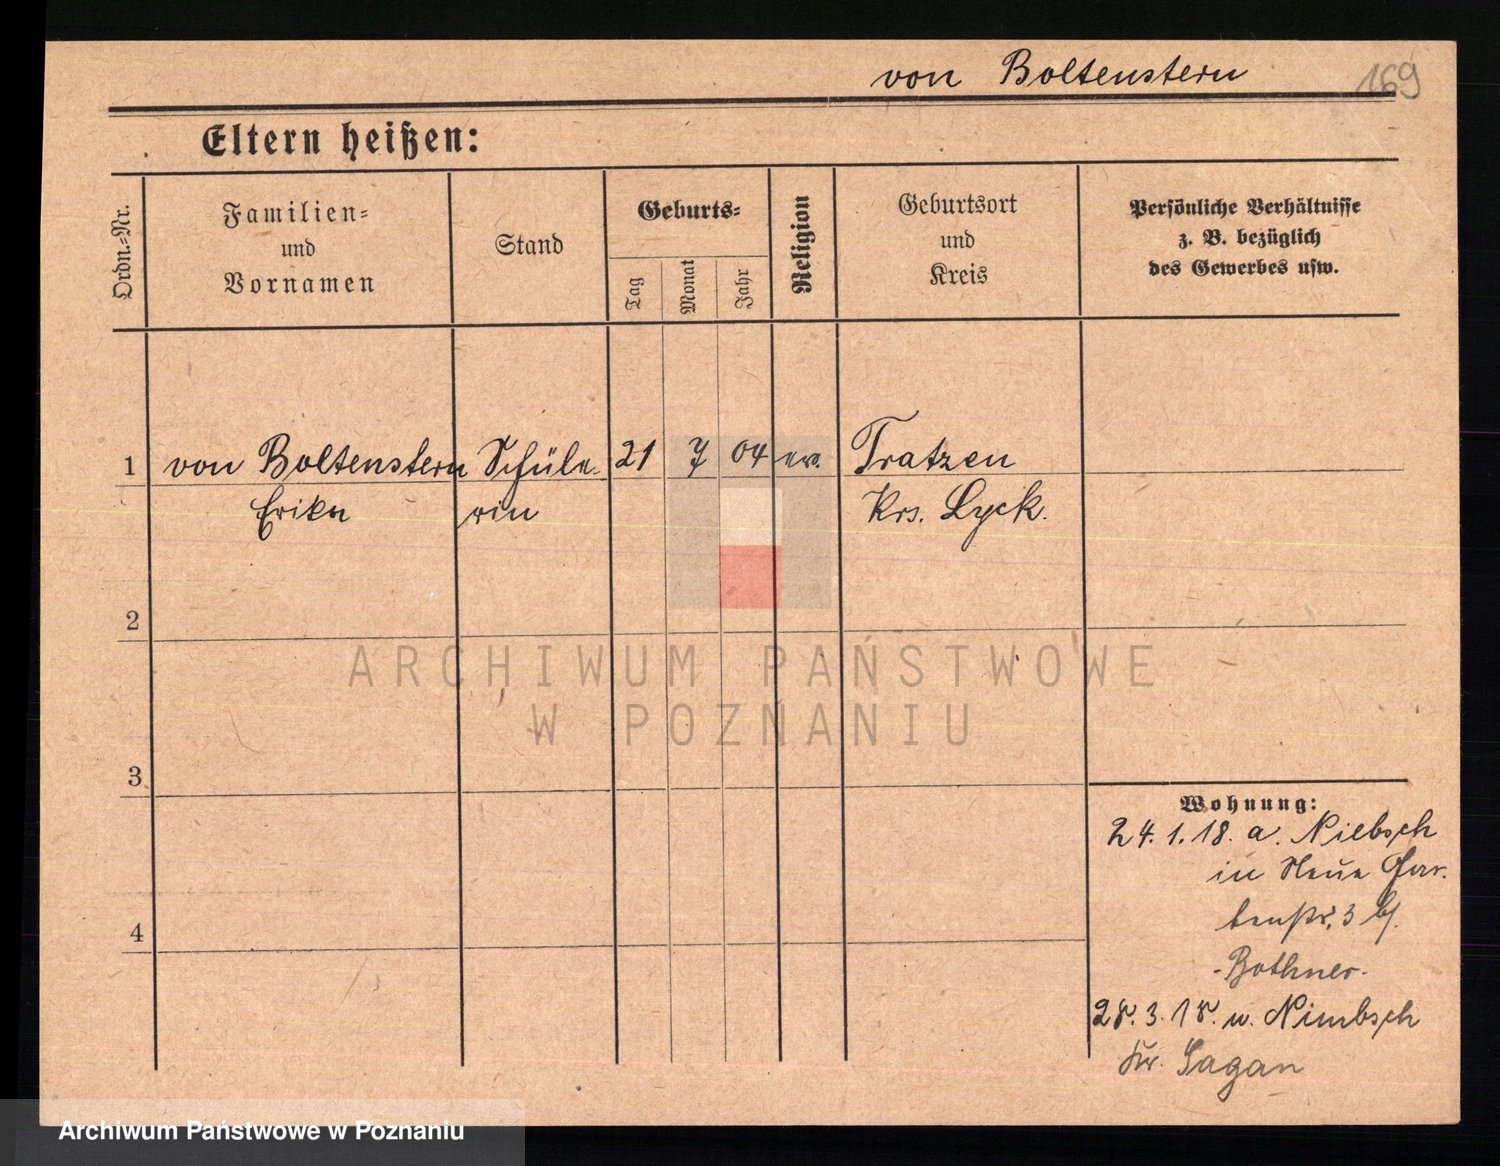 von Boltenstern 169
Eltern heißen:
Ordn.-Nr.
Familien-
und
Vornamen
Stand
Geburts-
Tag
Monat
Jahr
Religion
Geburtsort
und
Kreis
Persönliche Verhältnisse
z. B. bezüglich
des Gewerbes usw.
1 von Boltenstern Schüle- 21 7 04 ev. Tratzen
Erika rin Krs. Lyck.
2
ARCHIWUM PAŃSTWOWE
W POZNANIU
3
Wohnung:
24.1.18. a. Niebsch
in Neue Gar-
tenstr. 3 bei
-Bothner-
28.3.18. n. Nimbsch
4
Kr. Sagan
Archiwum Państwowe w Poznaniu